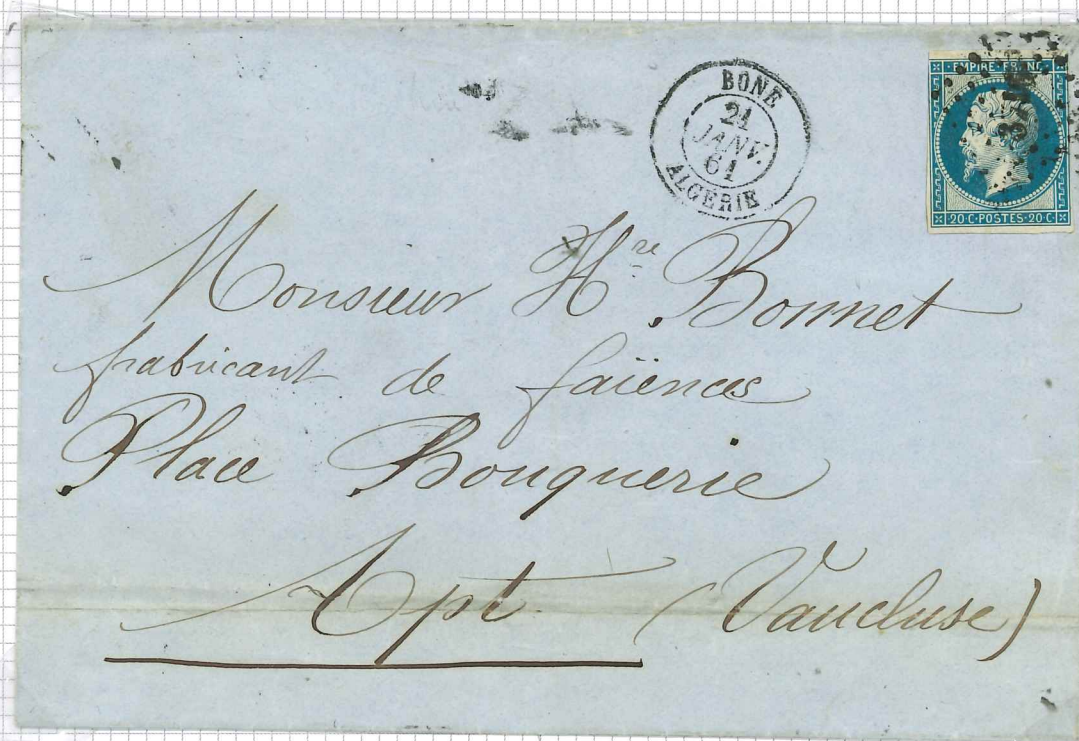 BONE
21
JANV.
61
ALGERIE
EMPIRE · FRANC ·
20 · C · POSTES · 20 · C ·
Monsieur Hre Bonnet
fabricant de faïences
Place Bouquerie
Apt (Vaucluse)